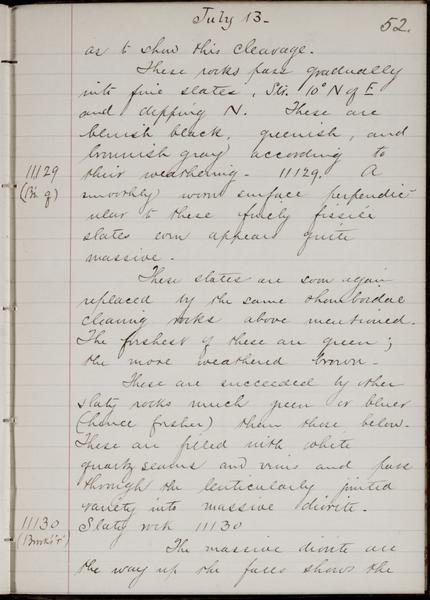 July 13.
52.
as to show this cleavage.
These rocks pass gradually
into fine slates, Str. 10° N of E
and dipping N. These are
bluish black, greenish, and
brownish gray according to
11129
their weathering. 11129. A
smoothly worn surface perpendic-
ular to these finely fissile
slates even appears quite
massive.
These slates are soon again
replaced by the same rhomboidal
cleaving rocks above mentioned.
The freshest of these are green;
the more weathered brown.
These are succeeded by other
slaty rocks much green or bluer
(hence fresher) than those below.
These are filled with white
quartz seams and veins and pass
through the lenticularly jointed
variety into massive diorite.
11130
Slaty rock 11130
The massive diorite are
the way up the faces shows the